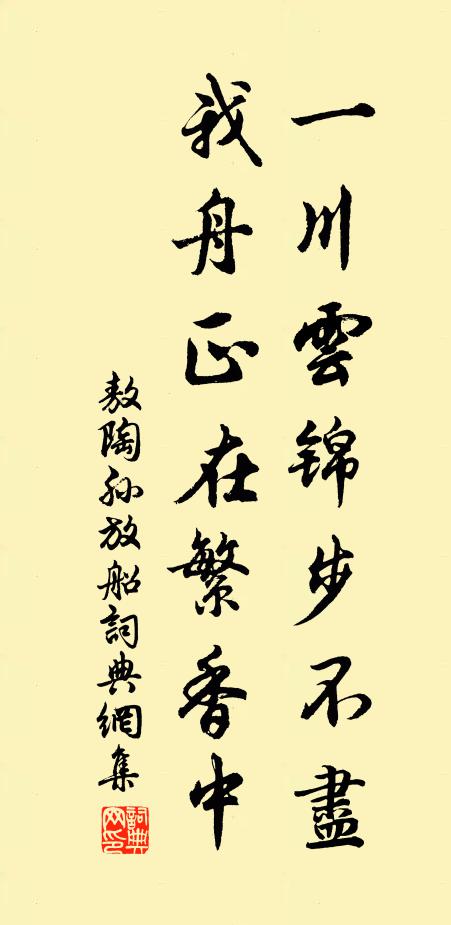 一川雲锦步不盡
我舟正在繁香中
敖陶孙放船詞典網集
詞典网印